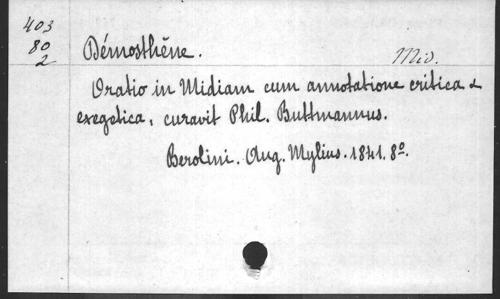 403
80
2
Démosthène.
Mid.
Oratio in Midiam cum annotatione critica &
exegetica, curavit Phil. Buttmannus.
Berolini. Aug. Mylius. 1841. 8º.